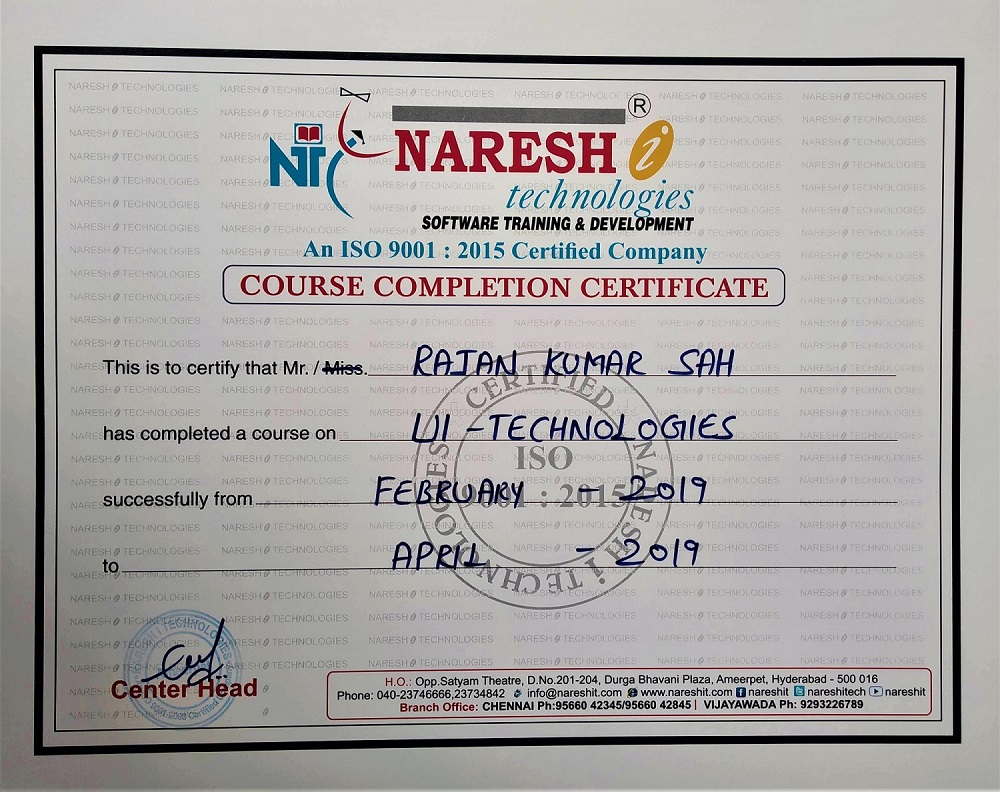 NT
®
NARESH i
technologies
SOFTWARE TRAINING & DEVELOPMENT
An ISO 9001 : 2015 Certified Company
COURSE COMPLETION CERTIFICATE
This is to certify that Mr. / Miss. RAJAN KUMAR SAH
has completed a course on UI - TECHNOLOGIES
successfully from FEBRUARY - 2019
to APRIL - 2019
CERTIFIED
ISO
9001 : 2015
NARESH i TECHNOLOGIES
Center Head
H.O.: Opp.Satyam Theatre, D.No.201-204, Durga Bhavani Plaza, Ameerpet, Hyderabad - 500 016
Phone: 040-23746666,23734842 info@nareshit.com www.nareshit.com nareshit nareshitech nareshit
Branch Office: CHENNAI Ph:95660 42345/95660 42845 | VIJAYAWADA Ph: 9293226789